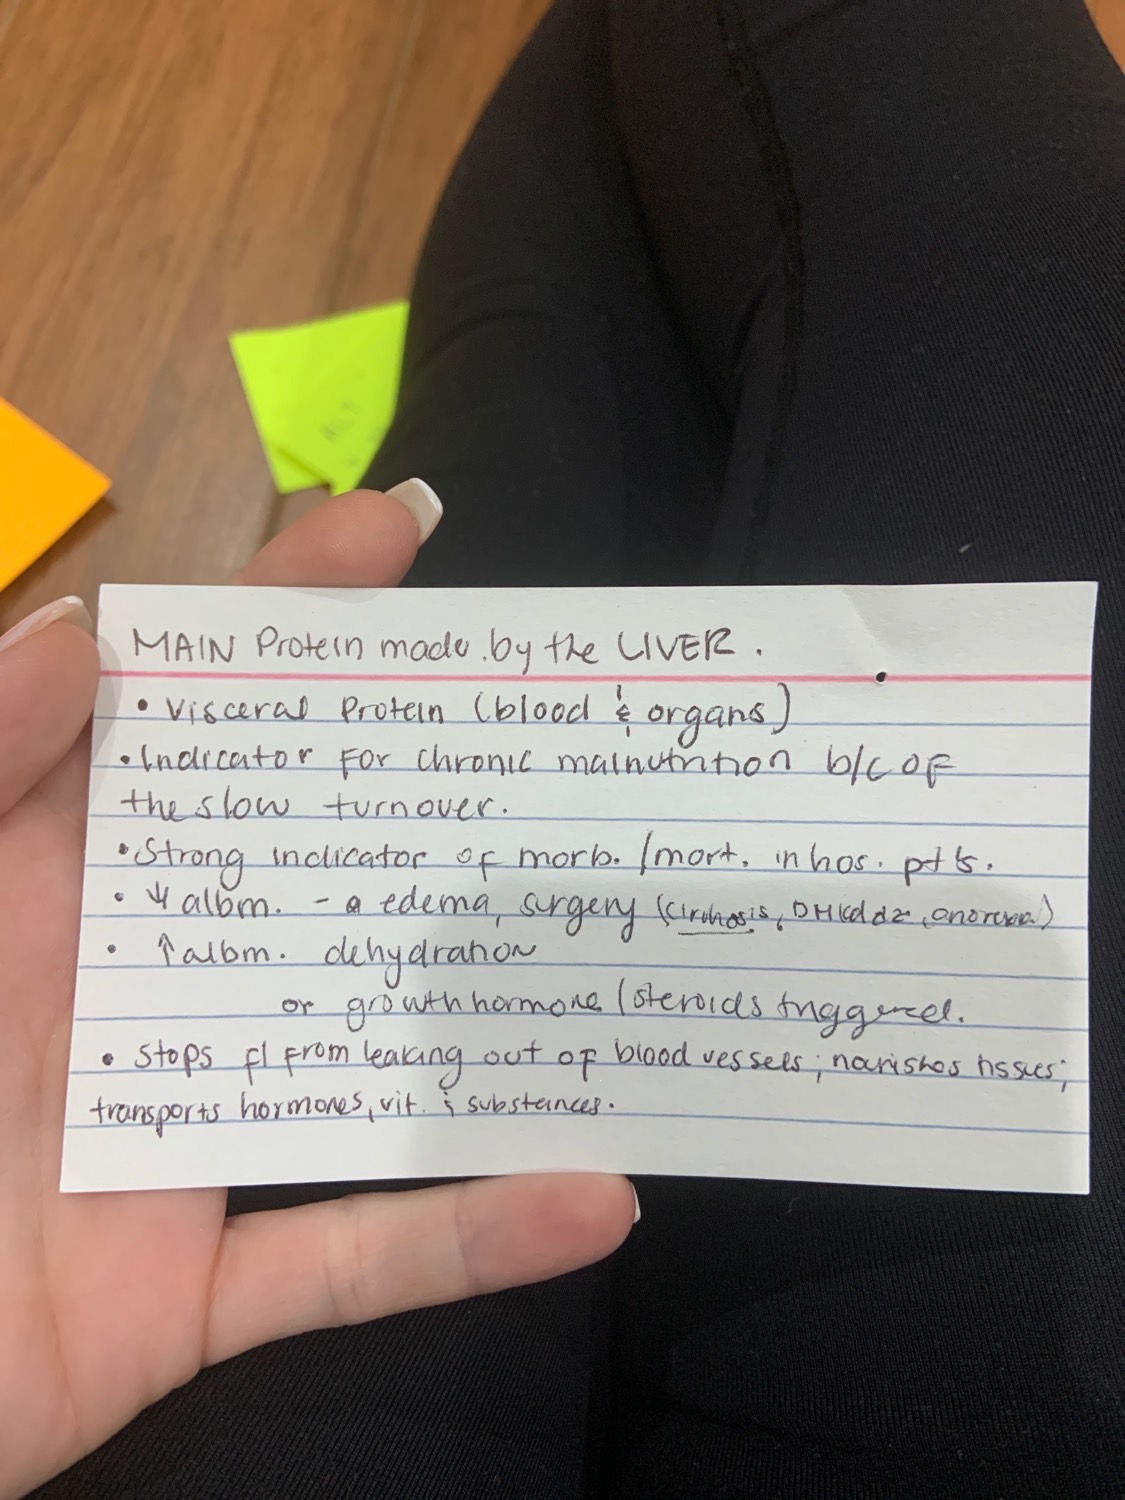 MAIN Protein made by the LIVER.
• Visceral Protein (blood & organs)
• Indicator For chronic malnutrition b/c OF
the slow turnover.
• Strong indicator of morb. / mort. in hos. pts.
• ↓ albm. - edema, surgery (Cirrhosis, anorexia)
• ↑ albm. dehydration
or growth hormone / steroids triggered.
• Stops fl From leaking out of blood vessels; nourishes tissues;
transports hormones, vit. & substances.